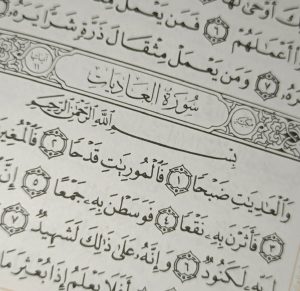 أَعْمَٰلَهُمْ ٦ فَمَن يَعْمَلْ
٧ وَمَن يَعْمَلْ مِثْقَالَ ذَرَّةٍ شَرًّا يَرَهُ
سُورَةُ الْعَادِيَاتِ
بِسْمِ ٱللَّهِ ٱلرَّحْمَٰنِ ٱلرَّحِيمِ
وَٱلْعَٰدِيَٰتِ ضَبْحًا ١ فَٱلْمُورِيَٰتِ قَدْحًا ٢ فَٱلْمُغِيرَ
٣ فَأَثَرْنَ بِهِۦ نَقْعًا ٤ فَوَسَطْنَ بِهِۦ جَمْعًا ٥ إِنَّ
لِرَبِّهِۦ لَكَنُودٌ ٦ وَإِنَّهُۥ عَلَىٰ ذَٰلِكَ لَشَهِيدٌ ٧
أَفَلَا يَعْلَمُ إِذَا بُعْثِرَ مَا